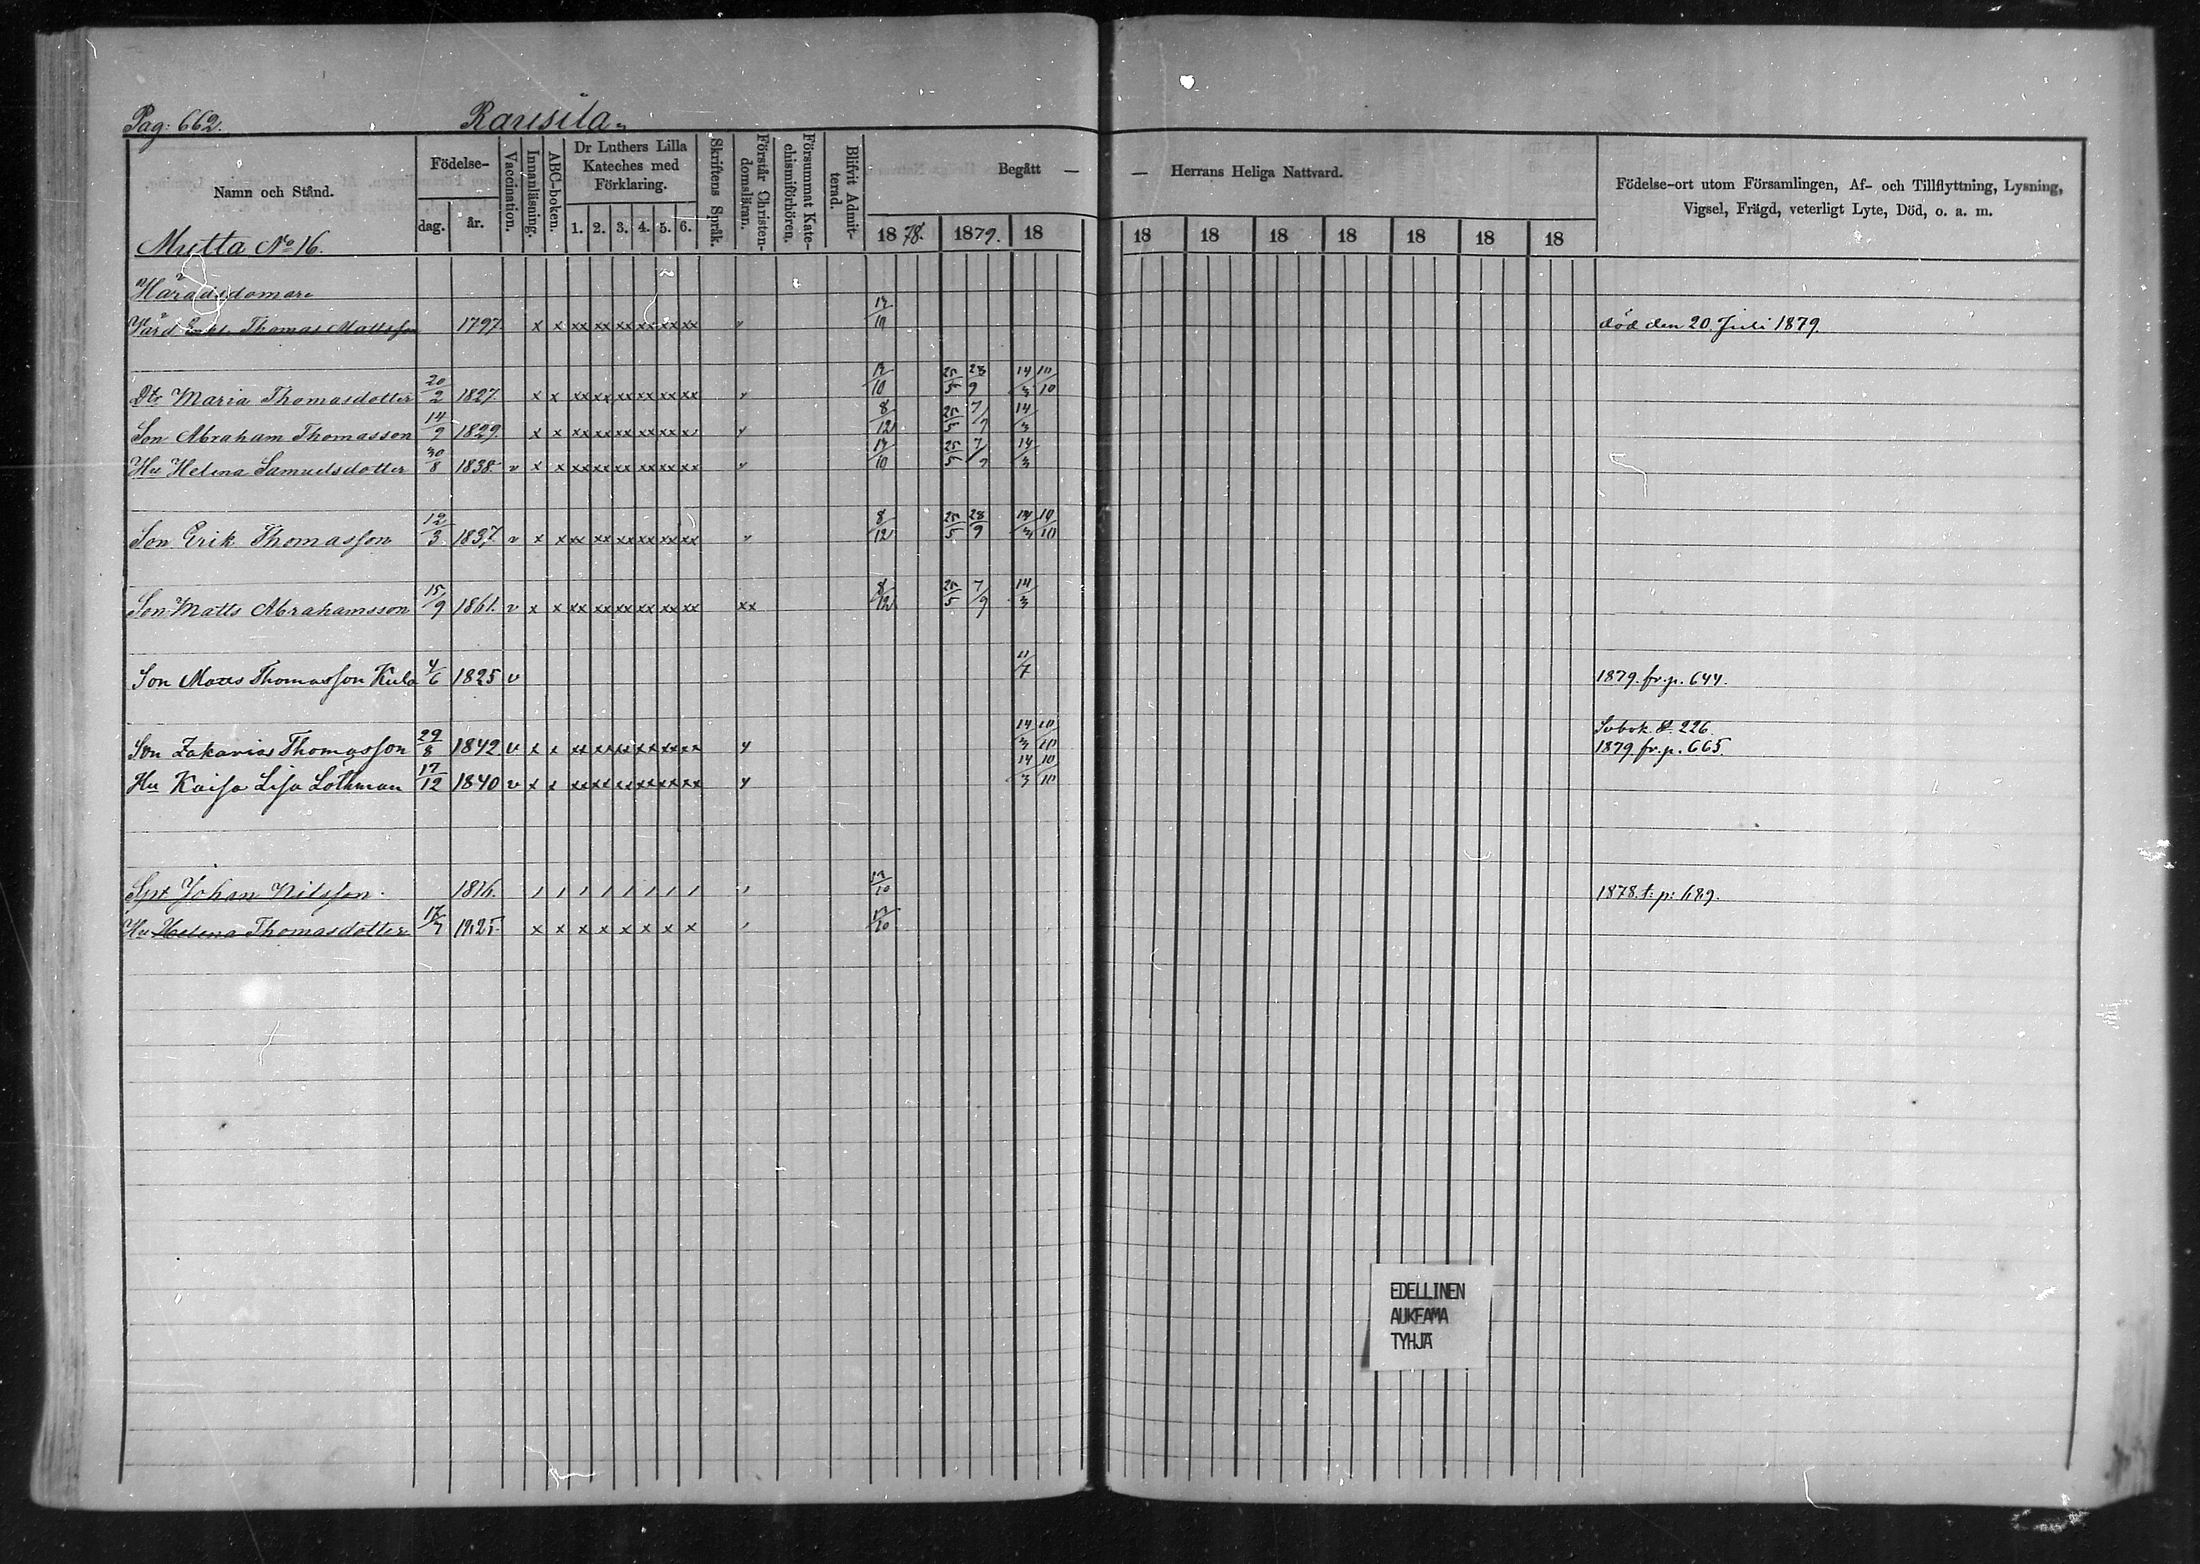 Pag: 662. Rausila
Namn och Stånd. Födelse- dag. år. Vaccination. Innanläsning. ABC-boken. Dr Luthers Lilla Kateches med Förklaring. 1. 2. 3. 4. 5. 6. Skriftens Språk. Förstår Christendomsläran. Försummat Katechismiförhören. Blifvit Admitterad. Begått — — Herrans Heliga Nattvard. Födelse-ort utom Församlingen, Af- och Tillflyttning, Lysning, Vigsel, Frägd, veterligt Lyte, Död, o. a. m.
1878. 1879. 18 18 18 18 18 18 18 18
Mutta No 16.
Häradsdomare
Vård Enkl. Thomas Mattsson 1797 x x xx xx xx xx xx xx v 13/10 död den 20. Juli 1879.
Dtr Maria Thomasdotter 20/2 1827 x x xx xx xx xx xx xx v 13/10 25/5 28/9 14/3 10/10
Son Abraham Thomasson 14/9 1829. x x xx xx xx xx xx xx v 8/12 25/5 7/9 14/3
Hu Helena Samuelsdotter 30/8 1838 v x x xx xx xx xx xx xx v 13/10 25/5 7/9 14/3
Son Erik Thomasson 12/3 1837 v x x xx xx xx xx xx xx v 8/12 25/5 28/9 14/3 10/10
Son Matts Abrahamsson 15/9 1861. v x x xx xx xx xx xx xx xx 8/12 25/5 7/9 14/3
Son Matts Thomasson Kula 4/6 1825 v 11/7 1879. fr. p. 644.
226.
Son Zakarias Thomasson 29/8 1842 v x x xx xx xx xx xx xx v 14/3 10/10 1879 fr. p. 665.
Hu Kaisa Lisa Lothman 17/12 1840 v x x xx xx xx xx xx xx v 14/3 10/10
Johan Nilsson 1816. / / / / / / / / / 13/10 1878. t. p: 689.
Hu Helena Thomasdotter 17/7 1825 x x x x x x x x / 13/10
EDELLINEN
AUKEAMA
TYHJÄ